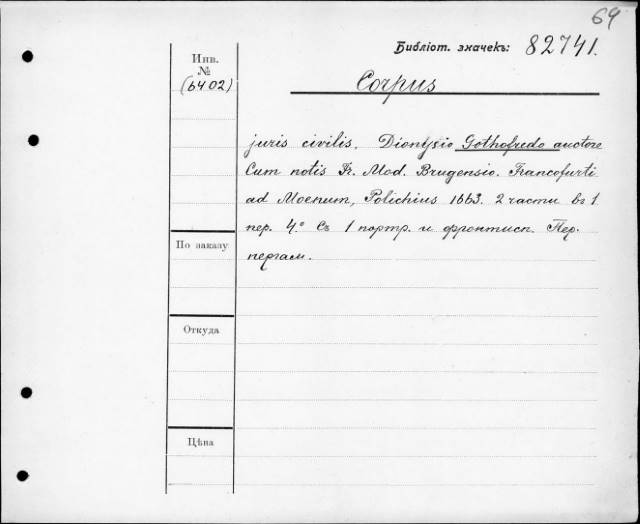 69
Библiот. значекъ: 82741.
Инв.
№
(6402)
Corpus
juris civilis. Dionysio Gothofredo auctore
Cum notis Fr. Mod. Brugensio. Francofurti
ad Moenum, Polichius 1663. 2 части въ 1
пер. 4.° Съ 1 портр. и фронтисп. Пер.
пергам.
По заказу
Откуда
Цѣна